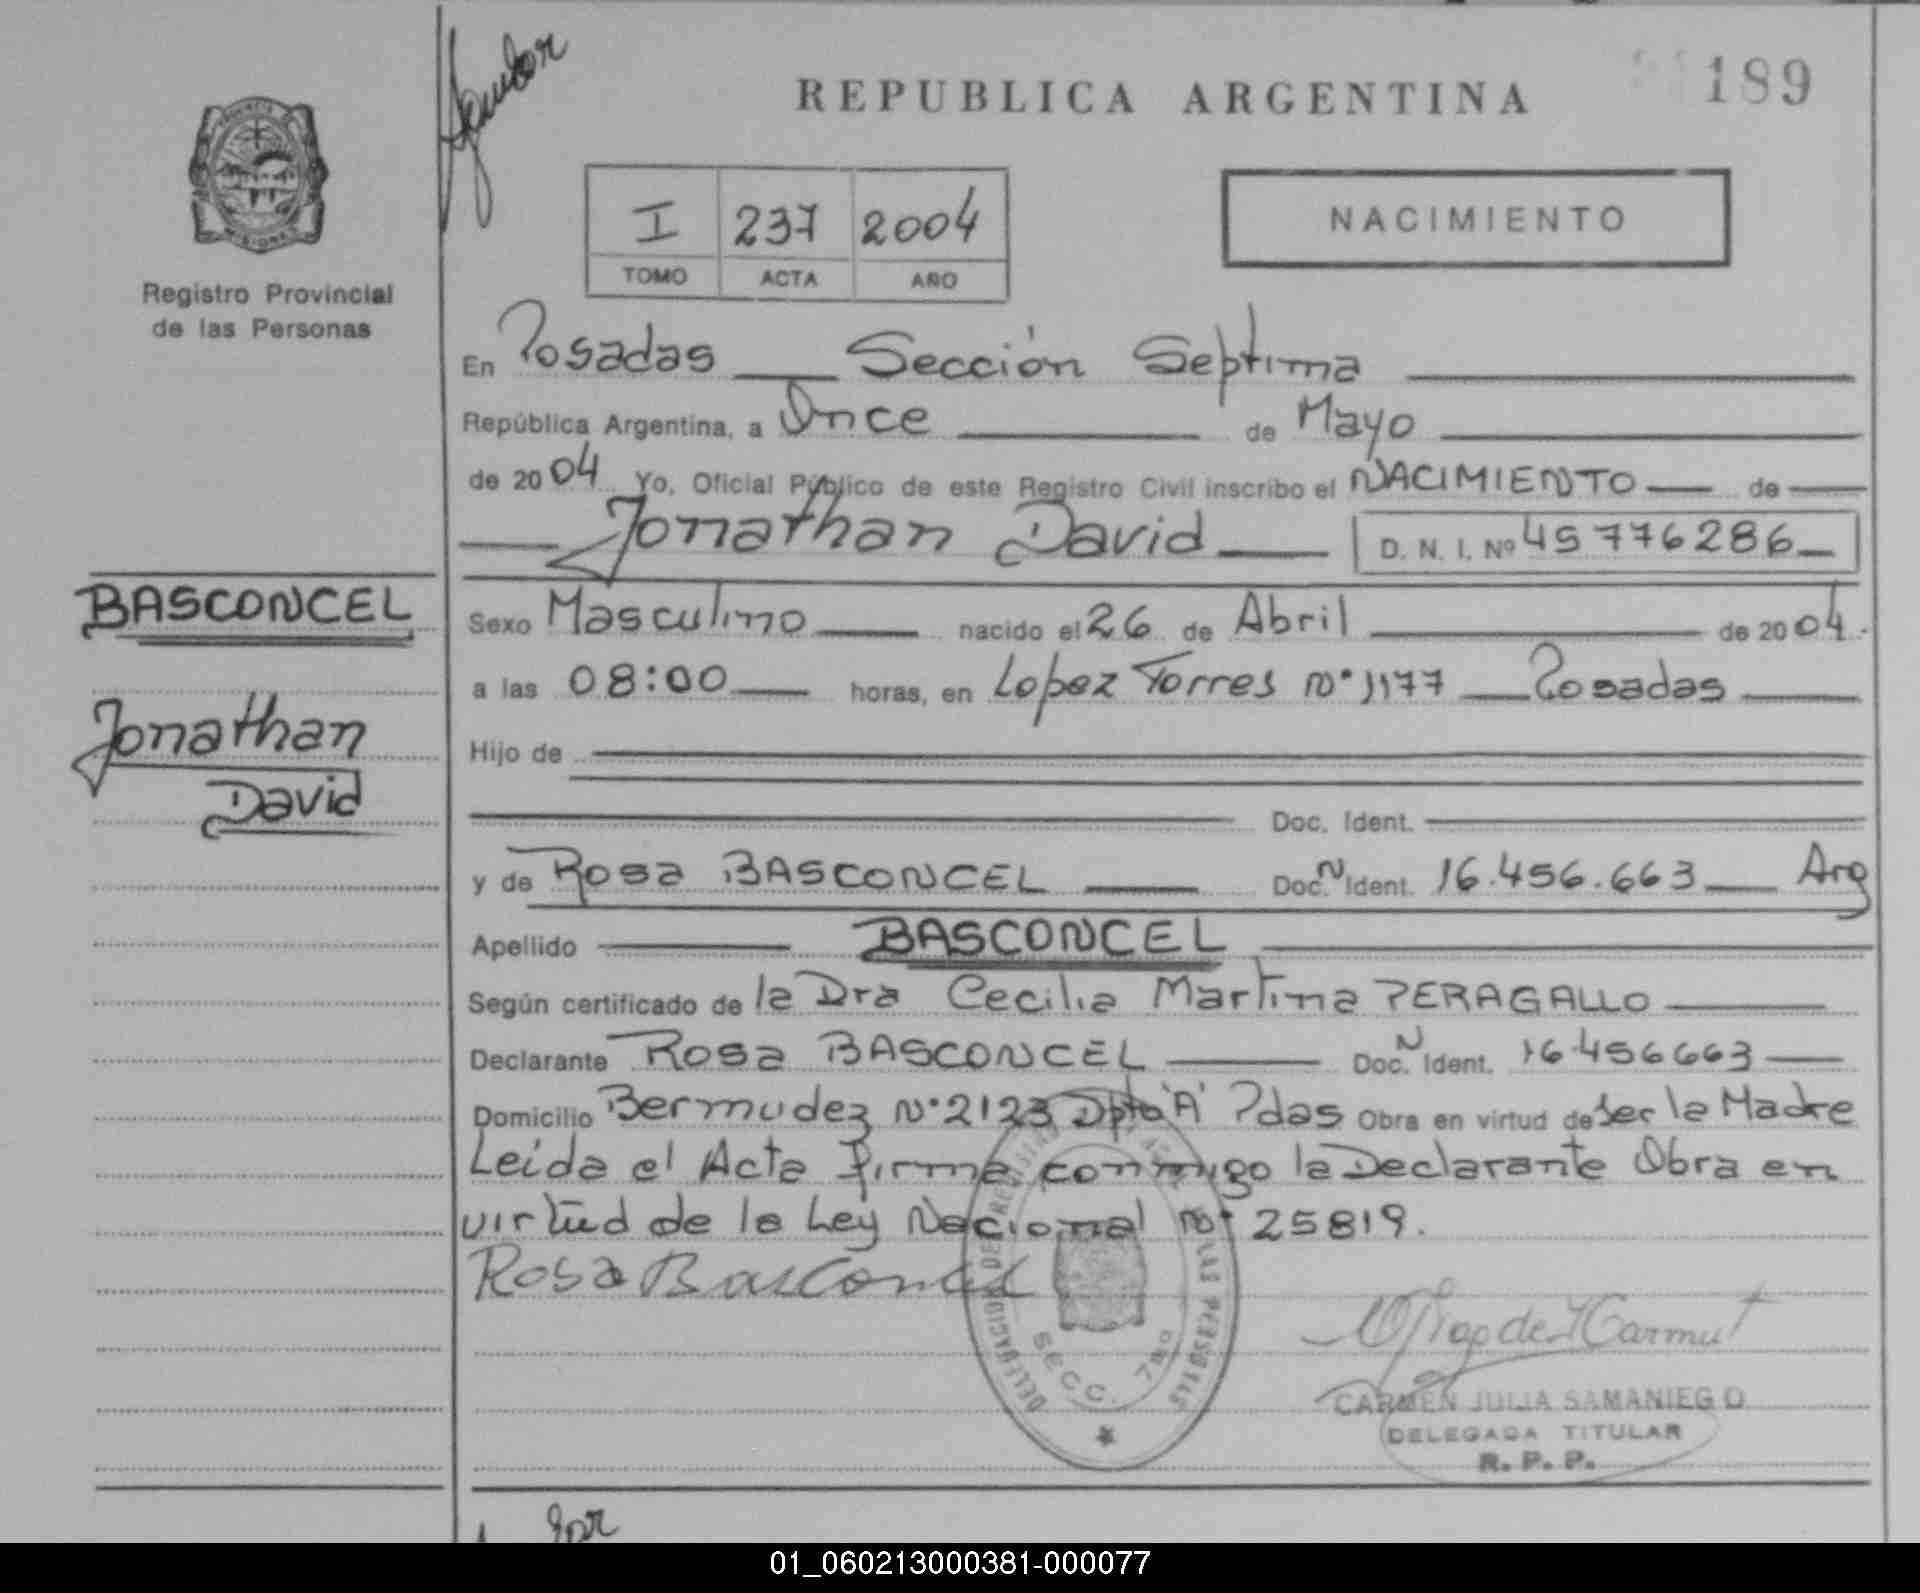 REPUBLICA ARGENTINA
189
Registro Provincial
de las Personas
I 237 2004
TOMO ACTA AÑO
NACIMIENTO
En Posadas Sección Septima
República Argentina, a Once de Mayo
de 2004 Yo, Oficial Público de este Registro Civil inscribo el NACIMIENTO de
Jonathan David D. N. I. Nº 45776286
BASCONCEL
Jonathan
David
Sexo Masculino nacido el 26 de Abril de 2004.
a las 08:00 horas, en Lopez Torres Nº 1177 Posadas
Hijo de
Doc. Ident.
y de Rosa BASCONCEL Doc. N Ident. 16.456.663 Arg
Apellido BASCONCEL
Según certificado de la Dra Cecilia Martina PERAGALLO
Declarante Rosa BASCONCEL Doc. N Ident. 16.456663
Domicilio Bermudez Nº 2123 Dpto 'A' Pdas Obra en virtud de ser la Madre
Leida el Acta firma conmigo la Declarante Obra en
virtud de la Ley Nacional Nº 25819.
Rosa Basconcel
SECC. 7ma
CARMEN JULIA SAMANIEGO
DELEGADA TITULAR
R. P. P.
01_060213000381-000077